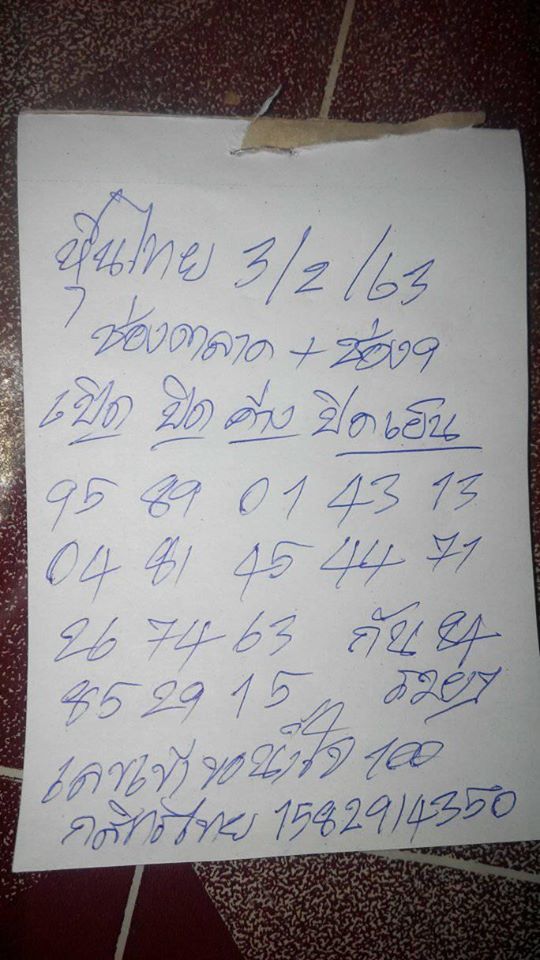 หุ้นไทย 3/2/63
ช่องตลาด + ช่อง9
เปิด ปิด ค่าง ปิดเย็น
95 89 01 43 13
04 81 45 44 71
26 74 63 กัน 84
85 29 15 รวยๆ
เลขเข้าขอน้ำใจ 100
กสิกรไทย 1582914350